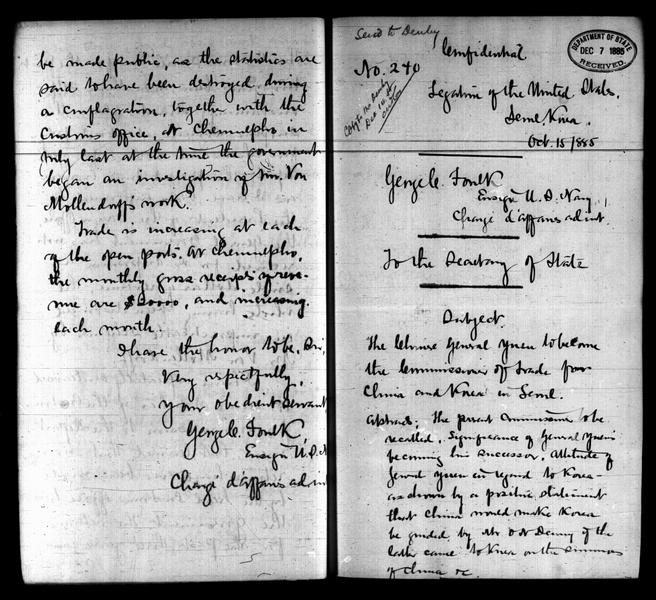 be made public, as the statistics are
said to have been destroyed during
a conflagration, together with the
Customs office, at Chemulpho, in
July last at the time the government
began an investigation of Mr. Von
Mollendorff's work.
Trade is increasing at each
of the open ports. At Chemulpho,
the monthly gross receipts of reve-
nue are $ , and increasing
each month.
I have the honor to be, Sir,
Very respectfully,
your obedient servant
George C. Foulk,
Ensign U.S.N
Chargé d'affaires ad in
Send to Denby
Confidential
DEPARTMENT OF STATE
DEC 7 1885
RECEIVED.
No. 240
Copy to Mr Denby
Dec 10
Legation of the United States.
Seoul, Korea.
Oct. 15/1885
George C. Foulk
Ensign U.S. Navy,
Chargé d'affaires ad int.
To the Secretary of State
Subject.
The Chinese General Yuen to become
the Commissioner of trade for
China and Korea in Seoul.
Abstract: The present Commissioner to be
recalled. Significance of General Yuen's
becoming his successor. Attitude of
General Yuen in regard to Korea
as shown by a positive statement
that China would make Korea
be guided by Mr. O N Denny if the
latter came to Korea on the summons
of China &c